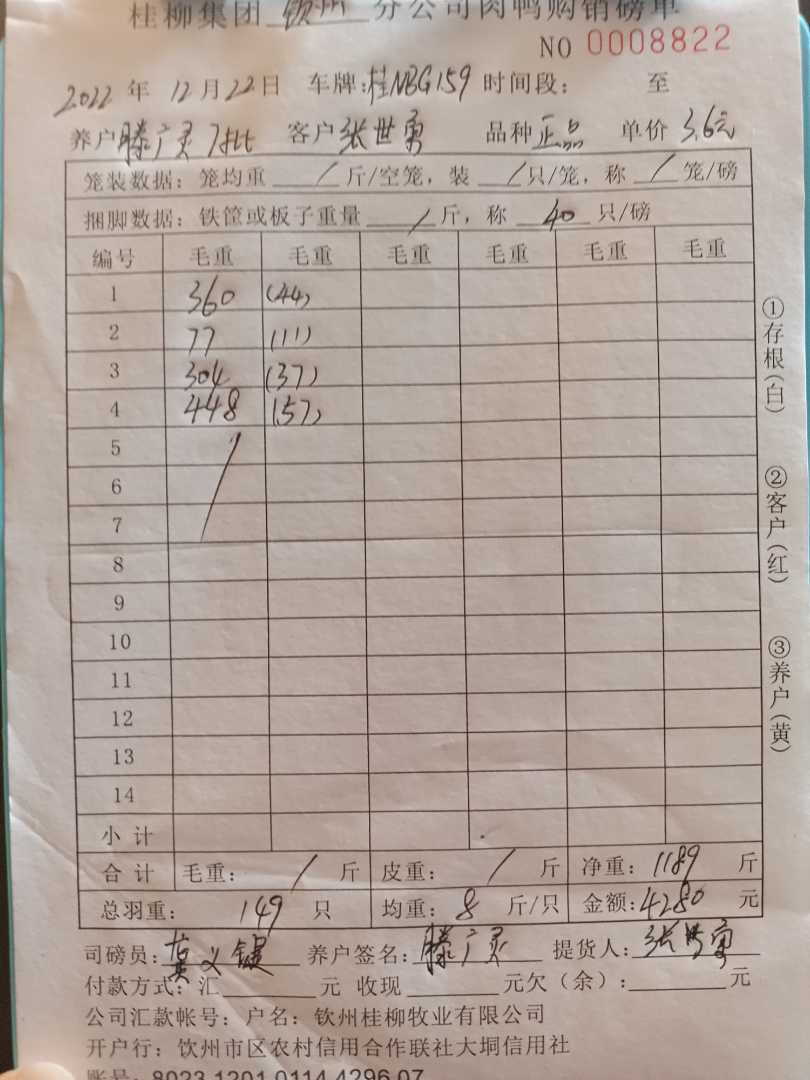 桂柳集团 钦州 分公司肉鸭购销磅单
NO 0008822
2022 年 12月22日 车牌:桂NBG159 时间段: 至
养户 滕广灵 客户 张世勇 品种 正品 单价 3.6元
笼装数据: 笼均重 / 斤/空笼, 装 / 只/笼, 称 / 笼/磅
捆脚数据: 铁筐或板子重量 / 斤, 称 40 只/磅
编号 毛重 毛重 毛重 毛重 毛重 毛重
1 360 (44)
2 77 (11)
3 304 (37)
4 448 (57)
5
6
7
8
9
10
11
12
13
14
小 计
合 计 毛重: / 斤 皮重: / 斤 净重: 1189 斤
总羽重: 149 只 均重: 8 斤/只 金额:4280 元
司磅员: 莫义键 养户签名: 滕广灵 提货人: 张世勇
付款方式: 汇 元 收现 元欠(余): 元
公司汇款帐号: 户名: 钦州桂柳牧业有限公司
开户行: 钦州市区农村信用合作联社大垌信用社
账号: 8023 1201 0114 4296 07
①存根(白)
②客户(红)
③养户(黄)